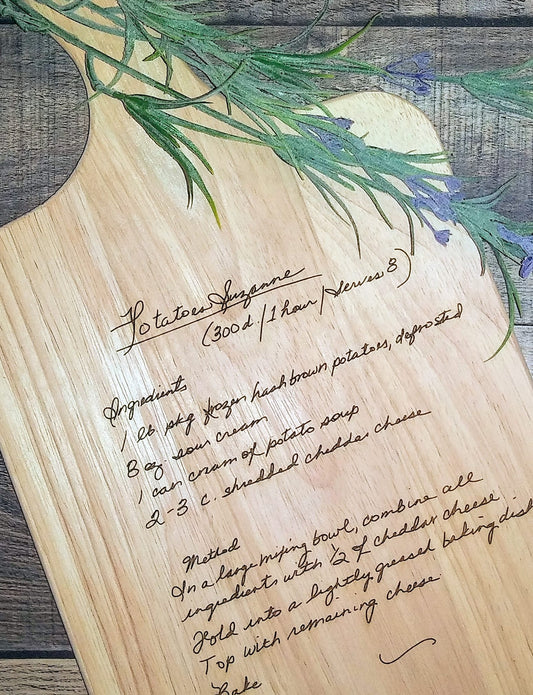 Potatoes Suzanne
(300d / 1 hour / Serves 8)
Ingredients
1 lb pkg frozen hashbrown potatoes, defrosted
8 oz. sour cream
1 can cream of potato soup
2-3 c. shredded cheddar cheese
Method
In a large mixing bowl, combine all
ingredients with 1/2 of cheddar cheese
Fold into a lightly greased baking dish
Top with remaining cheese
Bake